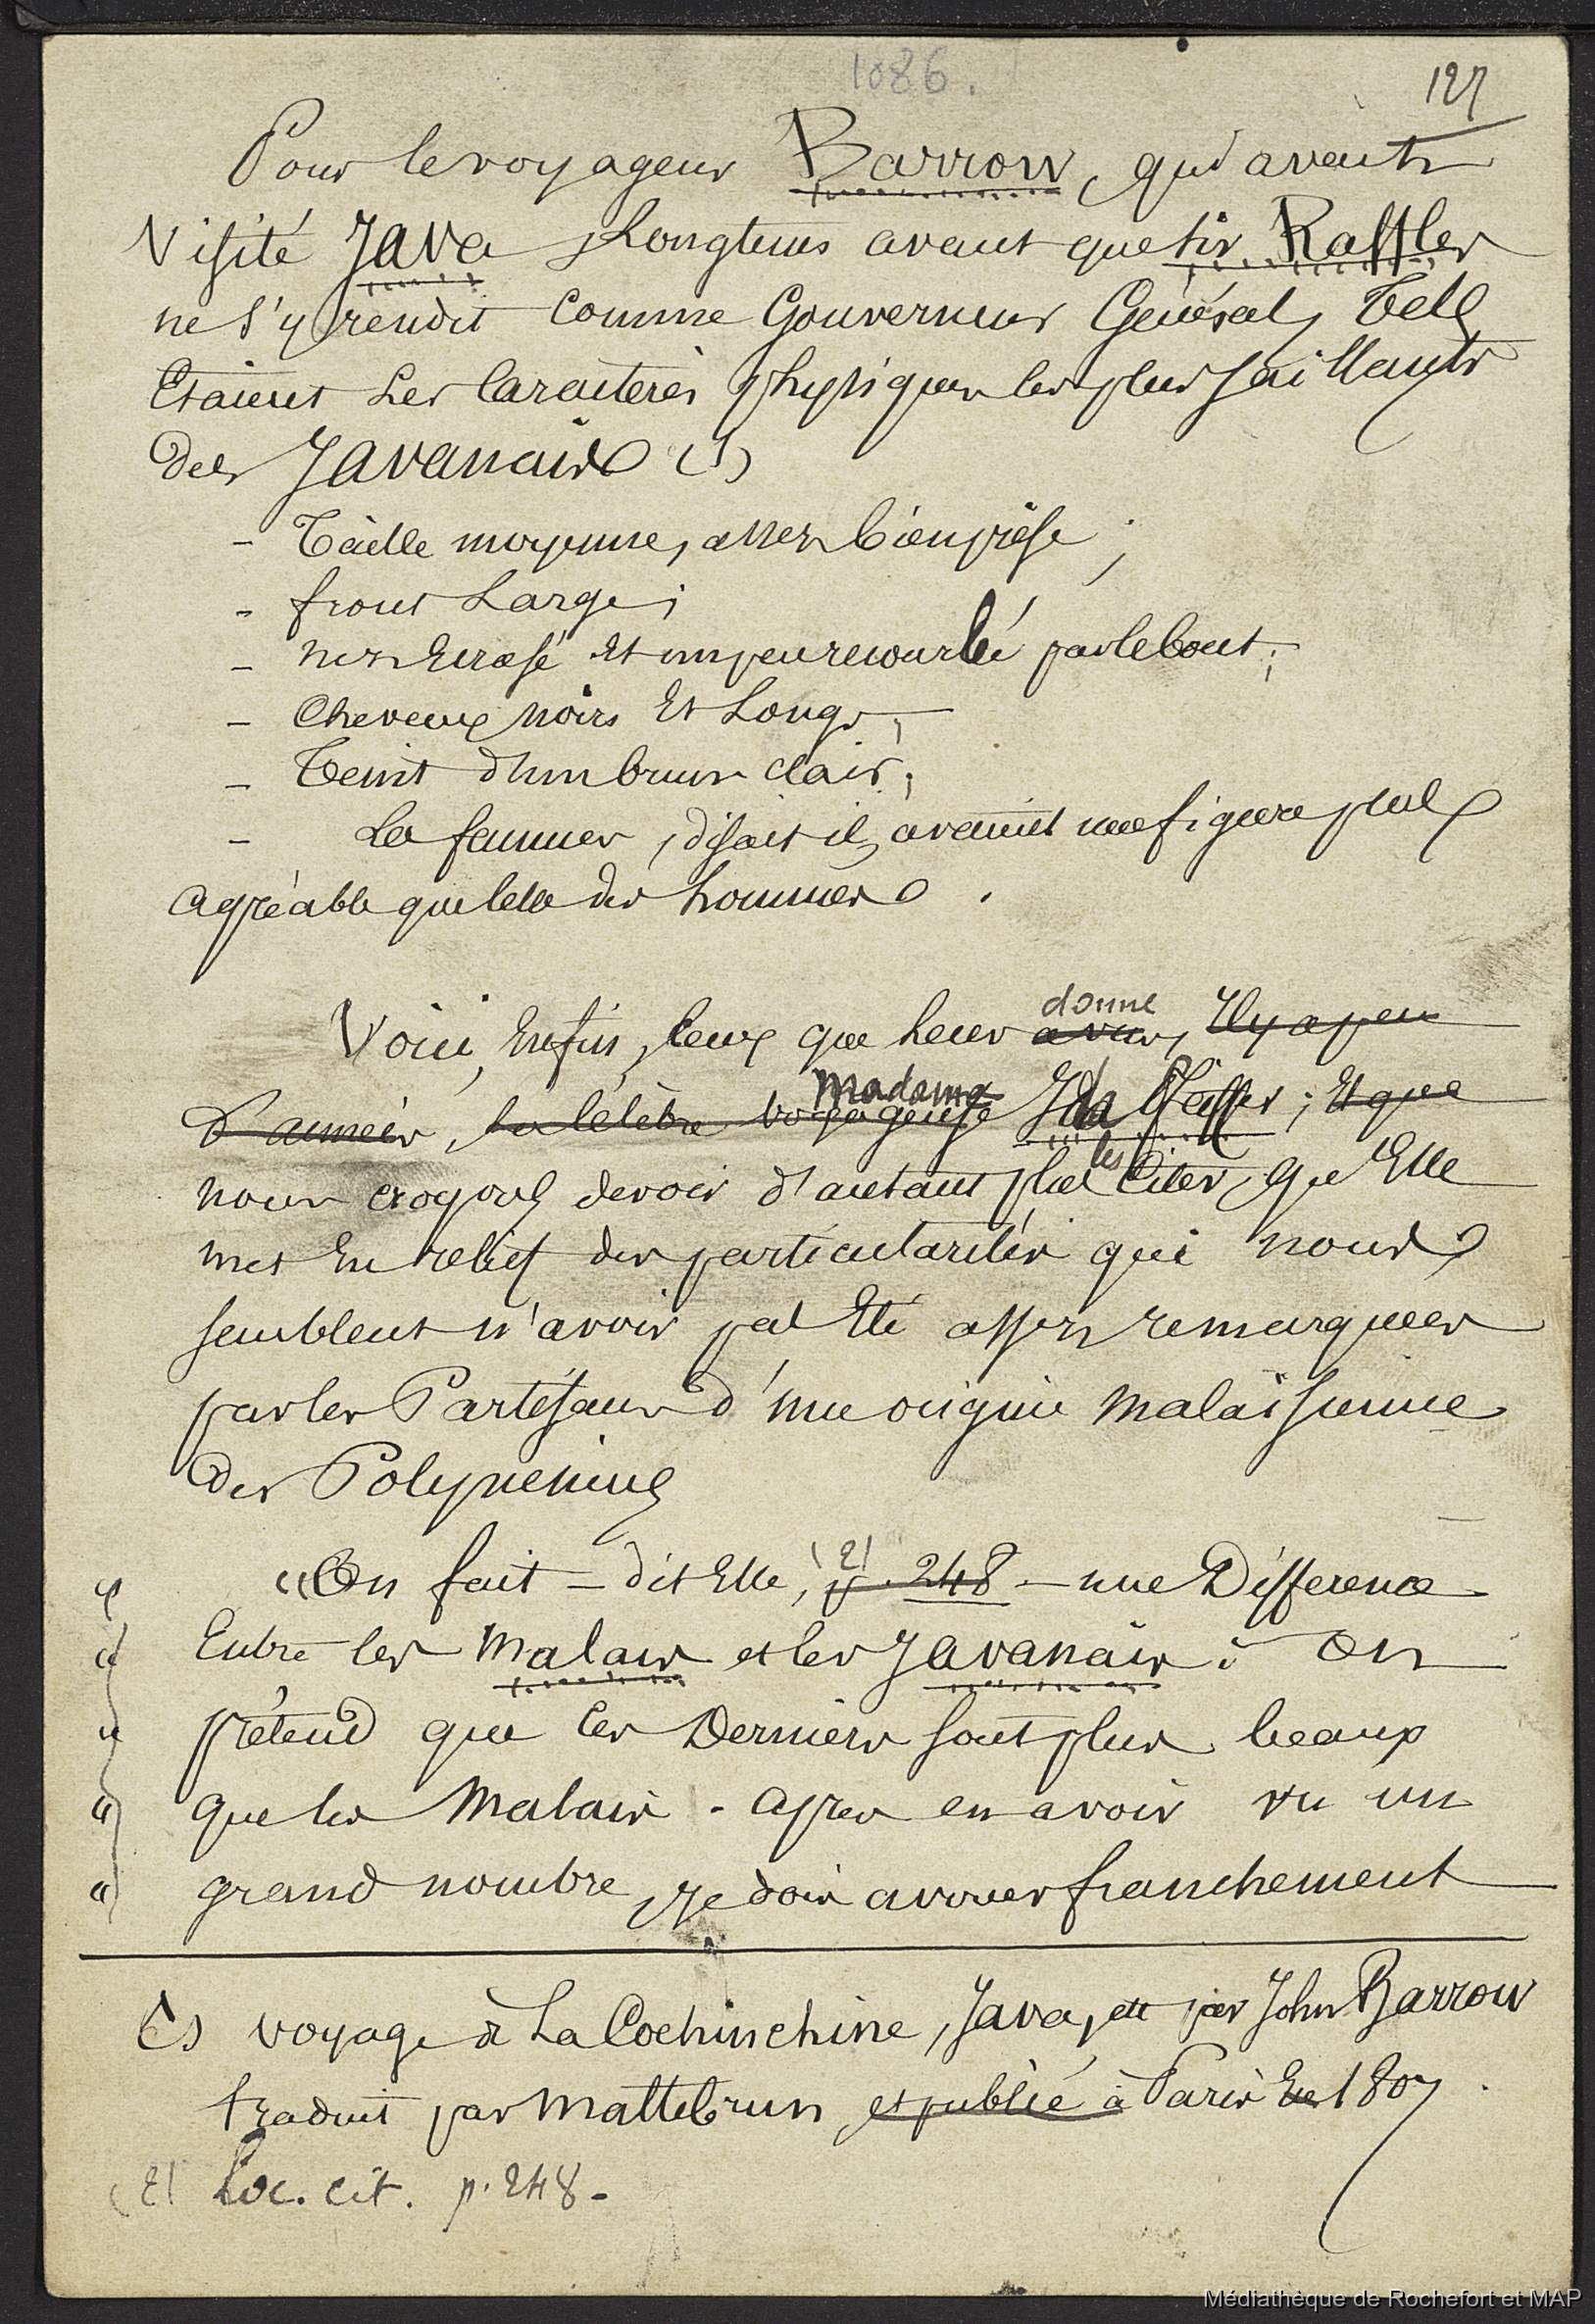 1086.
127
Pour le voyageur Barrow, qui avait
visité Java longtems avant que sir Raffles
ne s'y rendit comme Gouverneur Général, tels
étaient les caractères physiques les plus saillants
des Javanais (1)
- Taille moyenne, assez bien prise ;
- front large ;
- nez écrasé et un peu recourbé par le bout ;
- Cheveux noirs et longs ;
- Teint d'un brun clair ;
- Les femmes, disait-il, avaient une figure plus
agréable que celle des hommes.
donne
Voici, enfin, ceux que leur a vus, il y a peu
madame
d'années, la célèbre voyageuse Ida Pfeiffer ; et que
les
nous croyons devoir d'autant plus citer, qu'elle
met en relief des particularités qui nous
semblent n'avoir pas été assez remarquées
par les Partisans d'une origine malaisienne
des Polynésiens
(2)
" « On fait - dit elle, p. 248 - une Différence
" Entre les Malais et les Javanais : on
" prétend que ces Derniers sont plus beaux
" que les Malais - après en avoir vu un
" grand nombre, je dois avouer franchement
(1) voyage à La Cochinchine, Java, etc par John Barrow
traduit par Maltebrun et publié à Paris en 1807
(2) Loc. cit. p. 248 -
Médiathèque de Rochefort et MAP